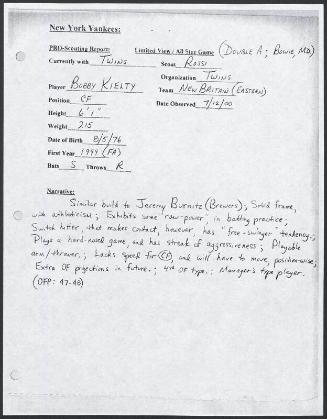 New York Yankees:
PRO-Scouting Report: Limited View / All Star Game (DOUBLE A; BOWIE, MD)
Currently with TWINS Scout ROSSI
Organization TWINS
Player BOBBY KIELTY Team NEW BRITAIN (EASTERN)
Position CF Date Observed 7/12/00
Height 6'1"
Weight 215
Date of Birth 8/5/76
First Year 1999 (FA)
Bats S Throws R
Narrative:
Similar build to Jeromy Burnitz (Brewers); Solid frame,
with athleticism; Exhibits some "raw-power", in batting practice;
Switch hitter, that makes contact, however, has "free-swinger" tendency;
Plays a hard-nosed game, and has streak of aggressiveness; Playable
arm/thrower; Lacks speed for CF, and will have to move, position-wise;
Extra OF projections in future; 4th OF type; Manager's type player.
(OFP: 47-48)